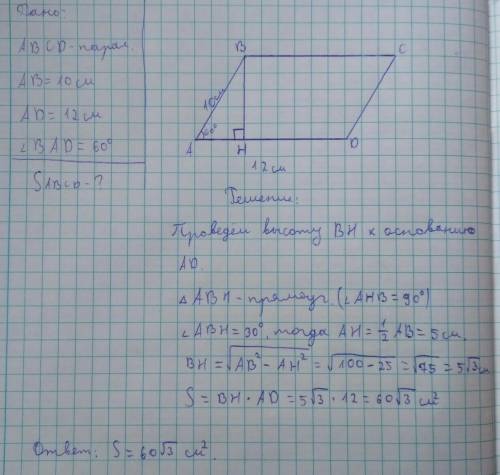 Дано:
ABCD-парал.
AB=10см
AD=12см
∠BAD=60°
SABCD-?
B
C
10см
60°
A
H
D
12см
Решение:
Проведем высоту BH к основанию
AD.
△ABH-прямоуг. (∠AHB=90°)
∠ABH=30°, тогда AH=½AB=5см.
BH=√AB²-AH²=√100-25=√75=5√3см
S=BH·AD=5√3·12=60√3см²
Ответ: S=60√3 см².